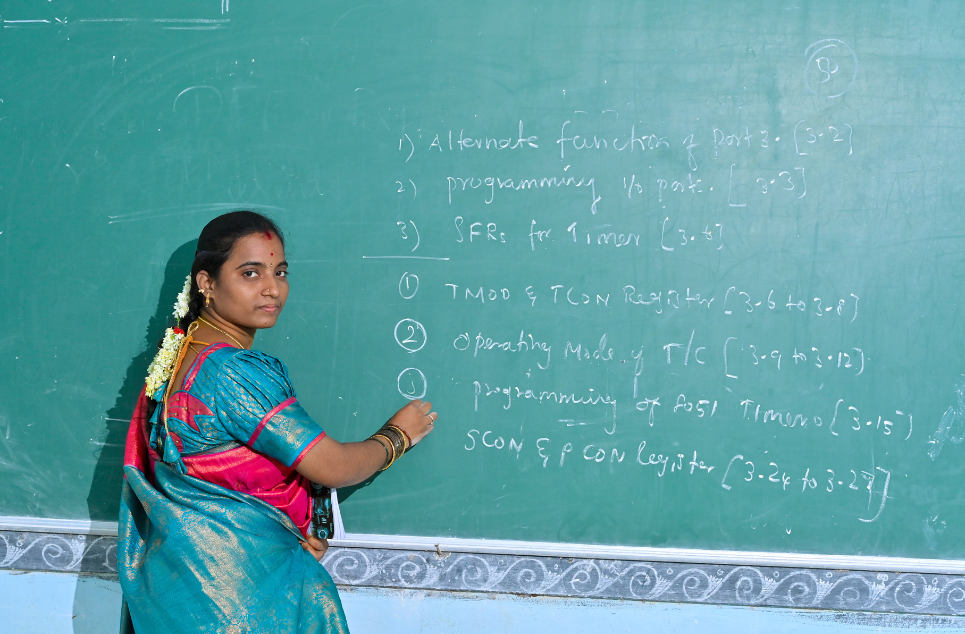 1) Alternate function of Port 3. [3.2]
2) programming i/o port. [3.3]
3) SFRs for Timer [3.5]
① TMOD & TCON Register [3.6 to 3.8]
② Operating Mode of T/C [3.9 to 3.12]
③ programming of 8051 Timer 0 [3.15]
SCON & PCON Register [3.24 to 3.27]